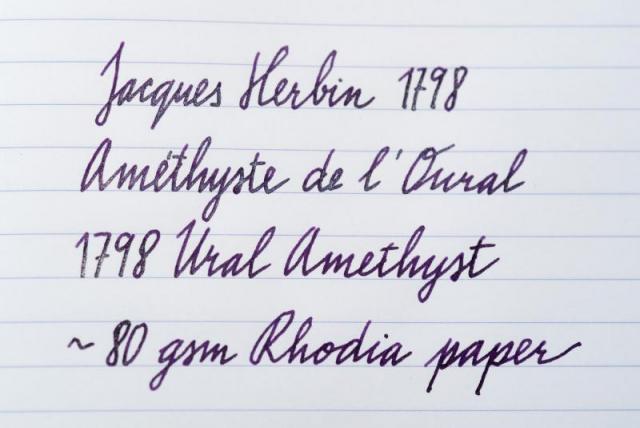 Jacques Herbin 1798
Améthyste de l'Oural
1798 Ural Amethyst
~ 80 gsm Rhodia paper